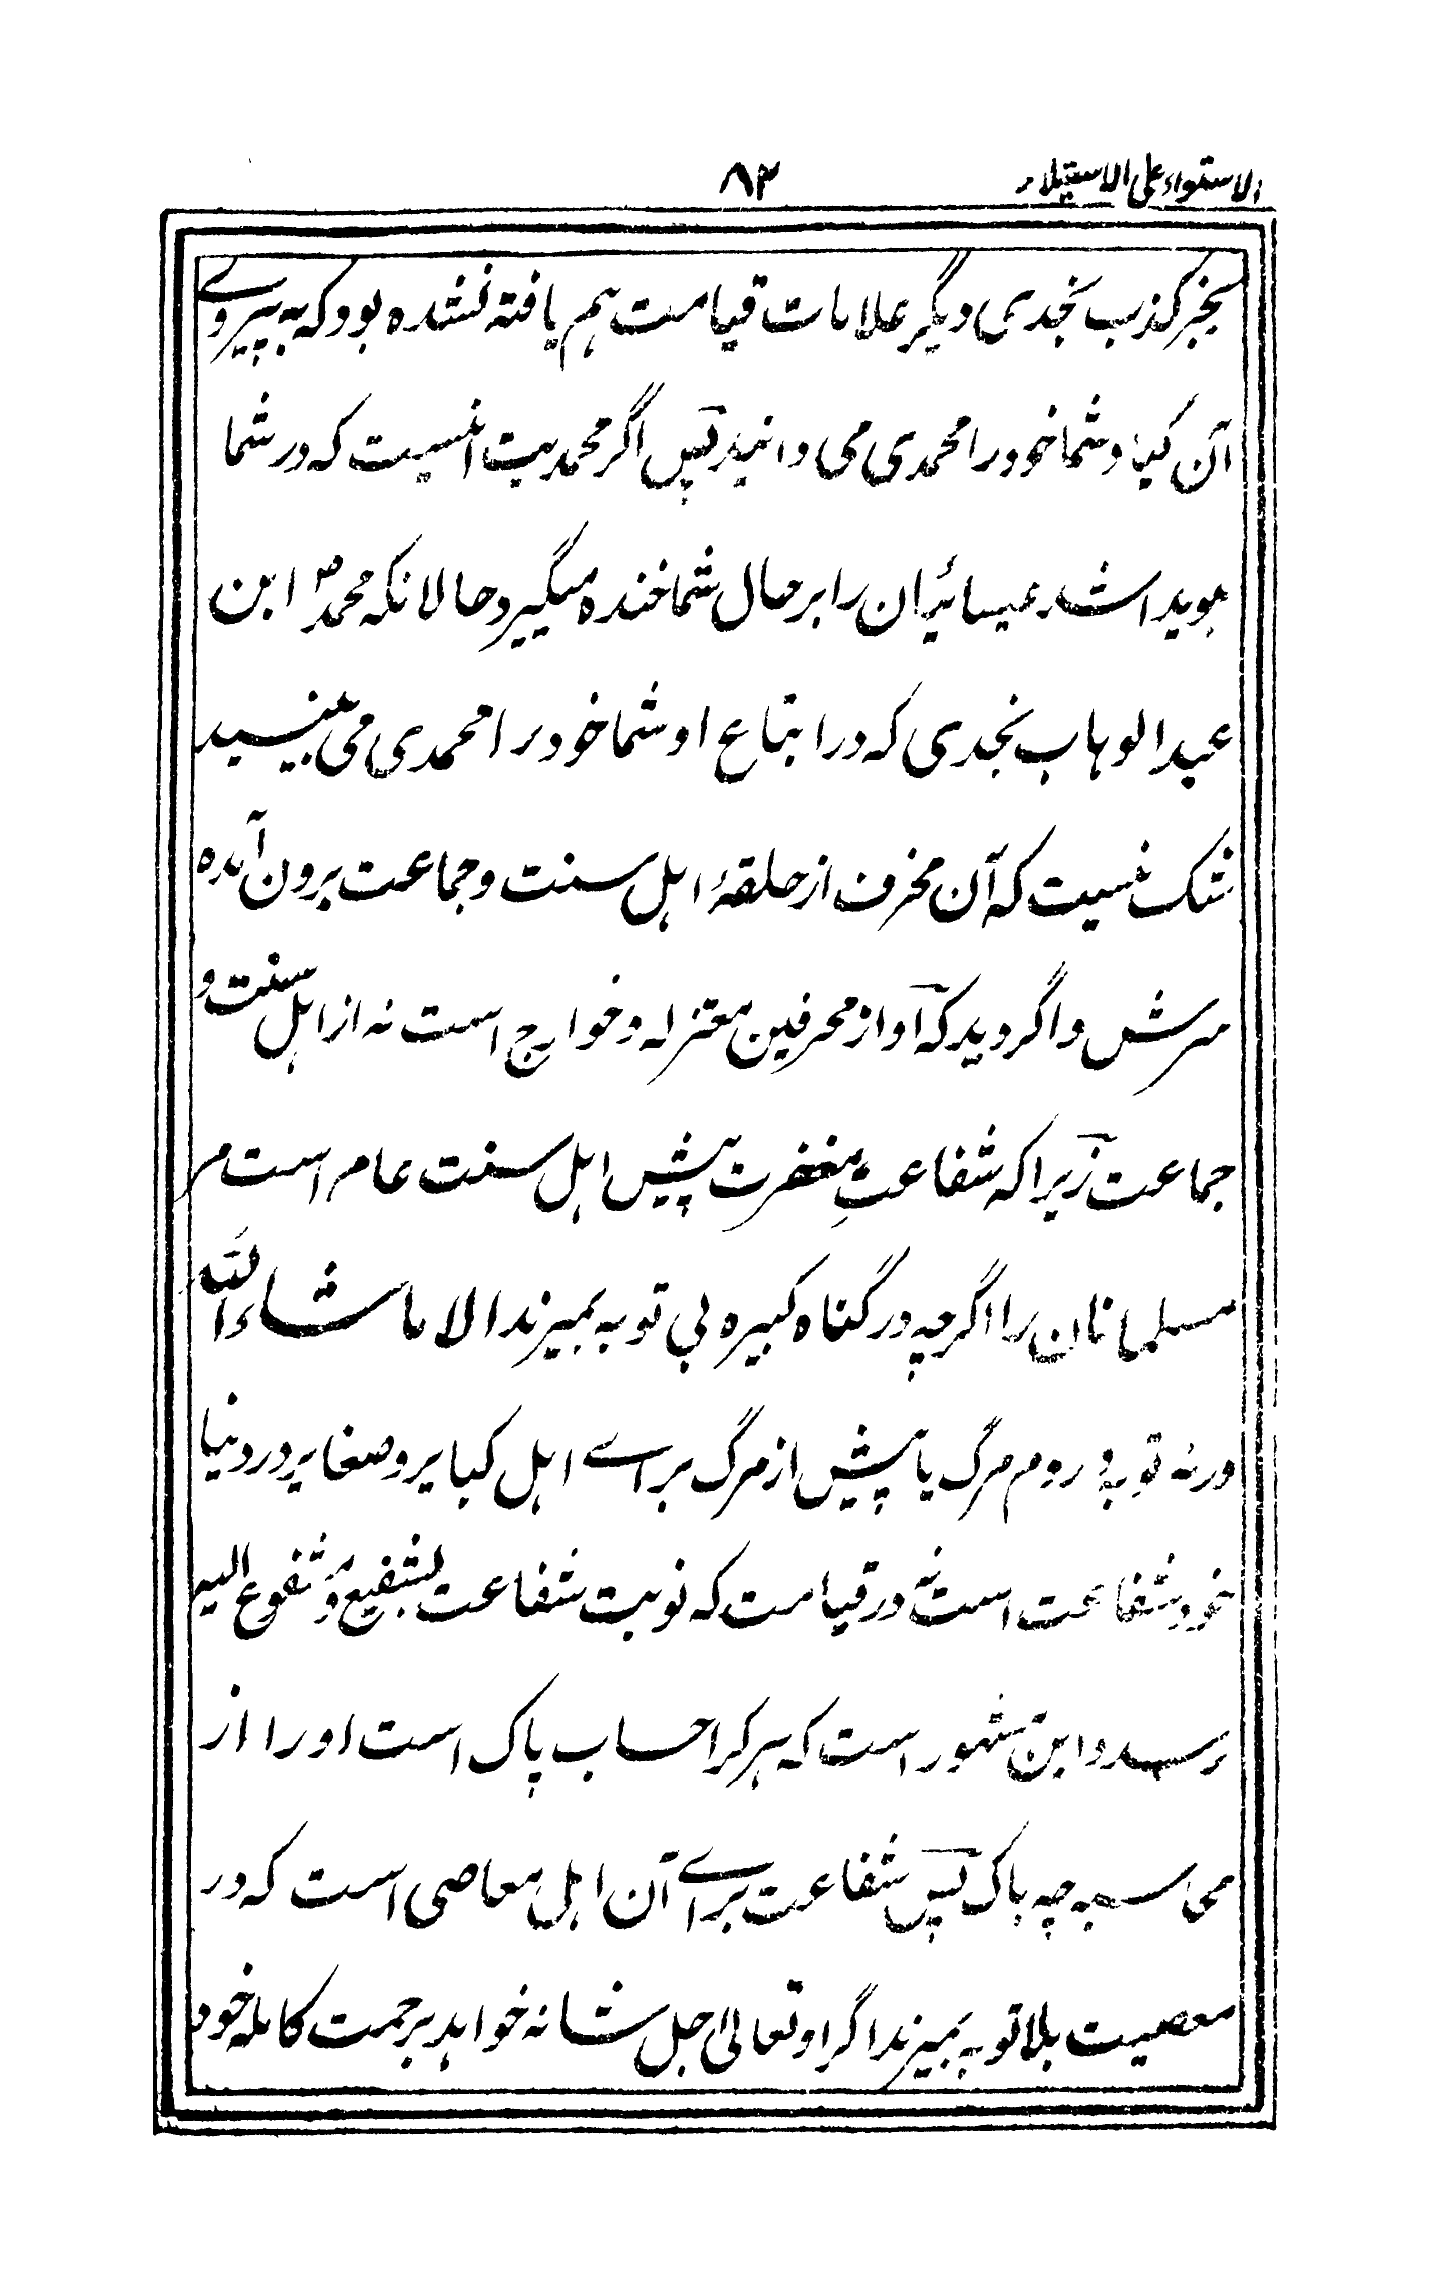 الاستواء علی الاستیلاء ۸۲
بجز کذب نجدی دیگر علامات قیامت هم یافته نشده بود که به پیروے
آن کیا و شما خود را محمدی می دانید پس اگر محمدیت اینست که در شما
هویدا شد عیسائیان را بر حال شما خنده میگیرد حالانکه محمدؐ ابن
عبد الوهاب نجدی که در اتباع او شما خود را محمدی می بینید
شک نیست که آن محرف از حلقهٔ اهل سنت و جماعت برون آمده
سرش واگردید که او از محرفین معتزله و خوارج است نه از اهل سنت و
جماعت زیرا که شفاعتِ مغفرت پیش اهل سنت عام است مر
مسلمانان را اگرچه در گناه کبیره بی توبه بمیرند الا ماشاء الله
ورنه توبه و روم مرگ یا پیش از مرگ براے اهل کبایر و صغایر در دنیا
خود شفاعت است نه در قیامت که نوبت شفاعت بشفیع و مشفوع الیه
رسد و این مشهور است که هر کرا حساب پاک است او را از
محاسبه چه باک پس شفاعت براے آن اهل معاصی است که در
معصیت بلا توبه بمیرند اگر او تعالی جل شانه خواهد برحمت کامله خود